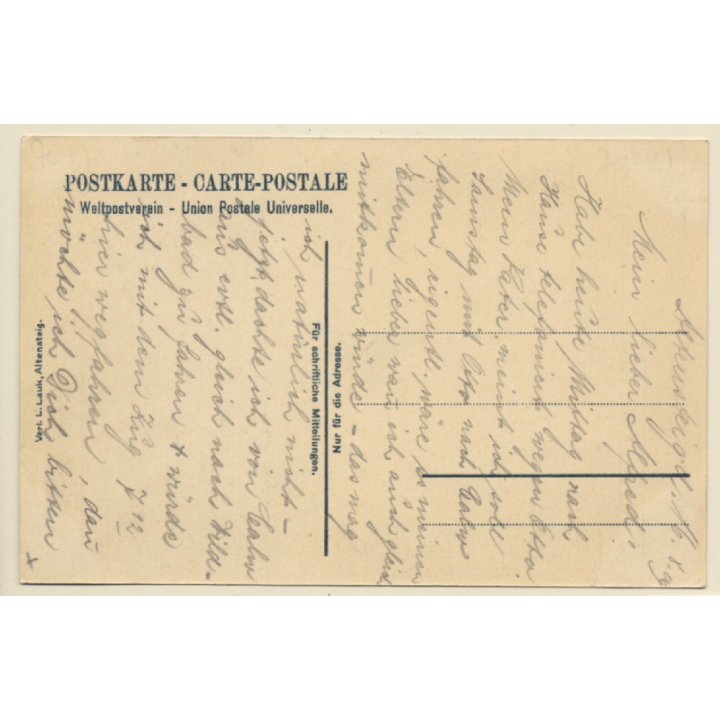 POSTKARTE - CARTE-POSTALE
Weltpostverein - Union Postale Universelle.
Für schriftliche Mitteilungen.
Nur für die Adresse.
Verl. L. Lauk, Altensteig.
Mein lieber Alfred!
Habe heute Mittag nach
Hause telefoniert wegen
Mein Vater meint ich soll
Samstag mit Otto nach Calw
fahren, eigentl. wäre es meinen
Eltern lieber wen ich auch gleich
mitkomen würde - das mag
ich natürlich nicht -
jetzt dachte ich von Calw
aus evtl. gleich nach Wild-
bad zu fahren & würde
ich mit dem Zug 7 12
hier wegfahren, dan
möchte ich Dich bitten